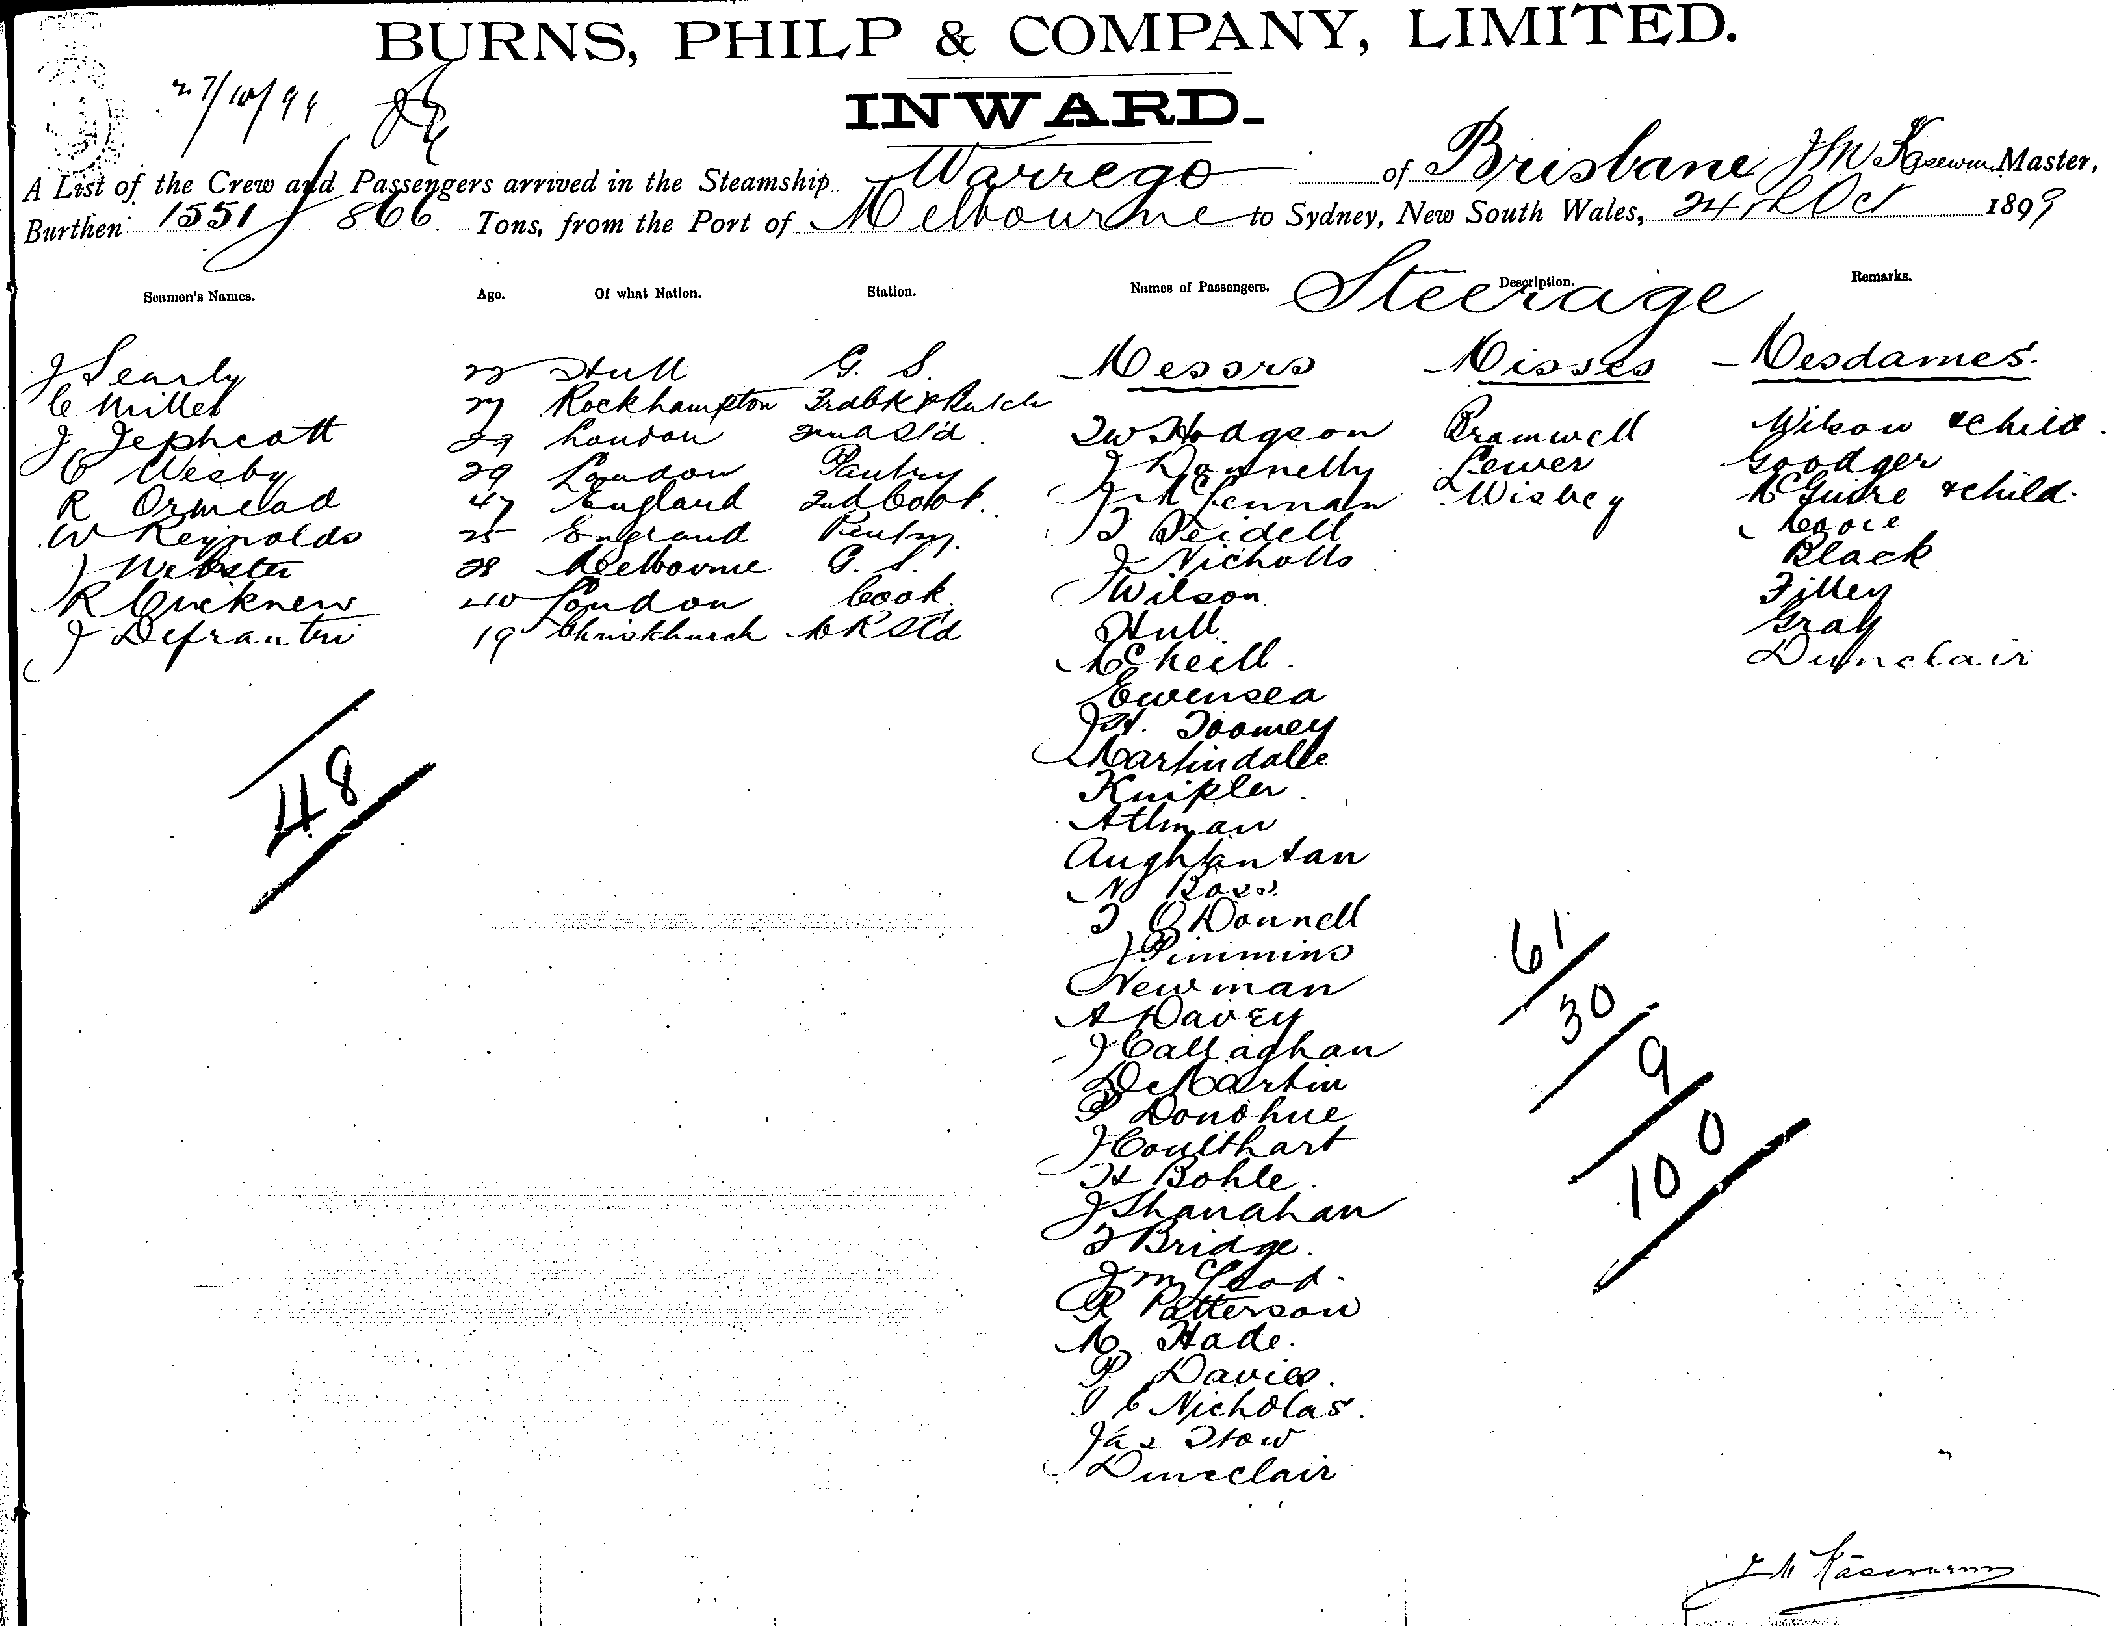 BURNS, PHILP & COMPANY, LIMITED.
27/10/99
INWARD.
A List of the Crew and Passengers arrived in the Steamship Warrego of Brisbane J M Kasemann Master,
Burthen 1551/866 Tons, from the Port of Melbourne to Sydney, New South Wales, 24th Oct 1899
Seamen's Names. Age. Of what Nation. Station. Names of Passengers. Description. Remarks.
Steerage
J Searly 22 Hull G. S. Messrs Misses Mesdames.
C Miller 27 Rockhampton
J Jephcott 29 London 2nd Std. J W Hodgson Bramwell Wilson & child.
C Wesby 29 London Pantry J Donnelly Lewer Goodger
R Ormerod 47 England 2nd Cook. J McLennan Wisbey McGuire & child.
W Reynolds 25 England Pantry. T Teidell Moore
J Webster 28 Melbourne G. S. J Nicholls Black
R Cucknew 40 London Cook. Wilson Filley
J Defrantri 19 Christchurch M R Std Hull Gray
McNeill. Dunclair
Ewensea
J H. Toomey
Martindale
Knipler.
Altman
Aughtantan
N Ross
T O'Donnell
J Timmins
Newman
A Davey
J Callaghan
De Martin
P Donohue
J Coulthart
H Bohle.
J Shanahan
T Bridge.
J McLeod.
R Patterson
M Hade.
P Davies.
J C Nicholas.
Jas Stow
Dunclair
48
61
30
9
100
J M Kasemann